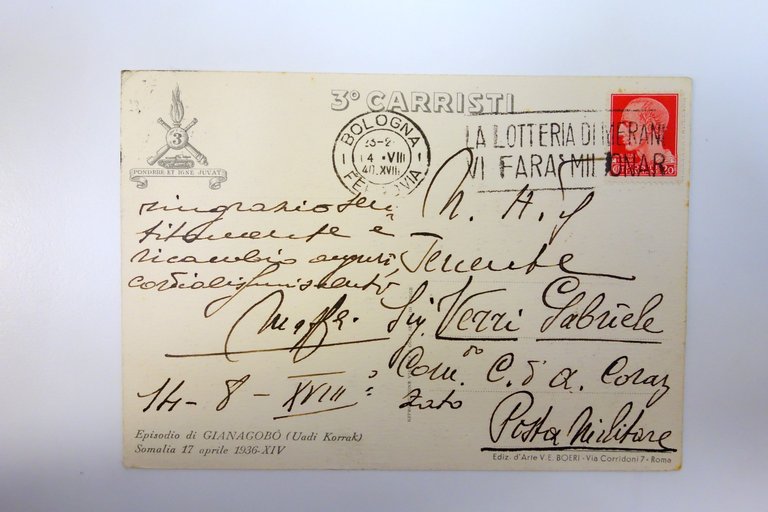 3° CARRISTI
3
PONDERE ET IGNE JUVAT
BOLOGNA
23-2
14 VIII
40.XVIII
FERROVIA
LA LOTTERIA DI MERANO
VI FARÀ MILIONAR
ringrazio sen-
titamente e
ricambio auguri,
cordialissimamente
14-8-XVIII°
N. H.
Tenente
Sig. Verri Gabriele
Com.do C. d'A. Coraz
zato
Posta Militare
Episodio di GIANAGOBÒ (Uadi Korrak)
Somalia 17 aprile 1936-XIV
Ediz. d'Arte V. E. BOERI - Via Corridoni 7 - Roma